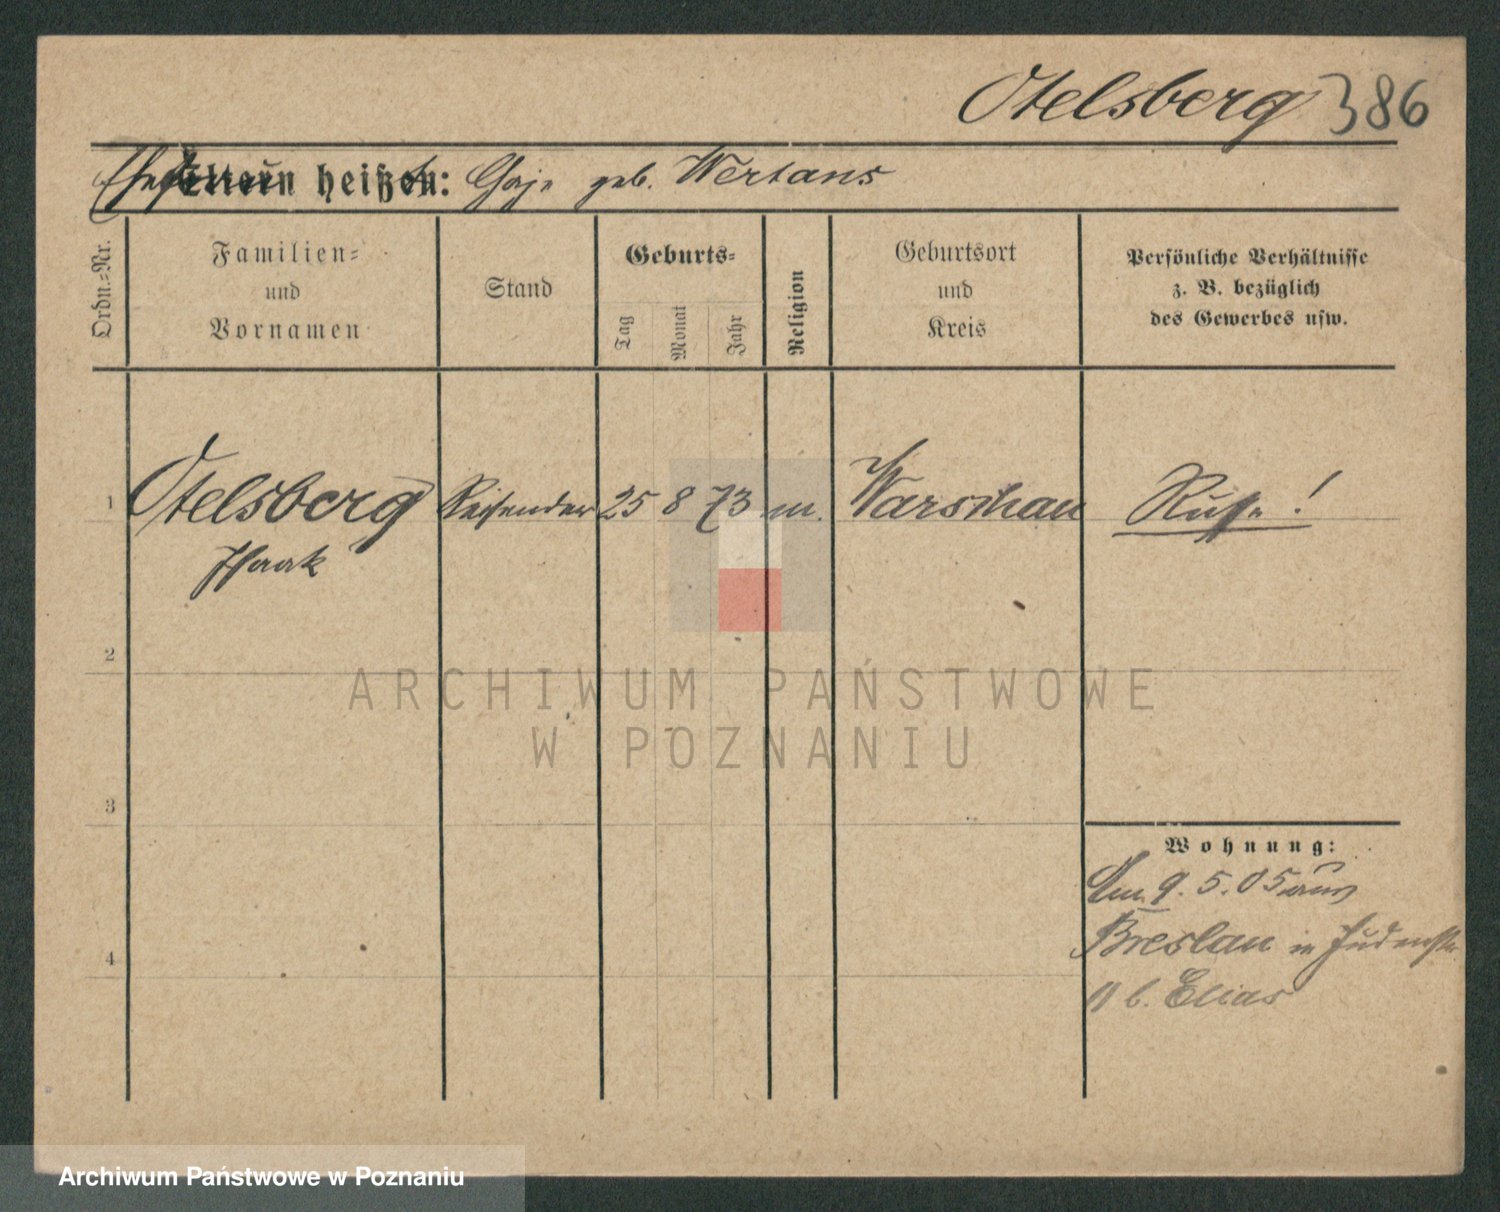 Otelsberg 386
Ehefrau Eltern heißen: Chaje geb. Wertans
Ordn.-Nr.
Familien-
und
Vornamen
Stand
Geburts-
Tag
Monat
Jahr
Religion
Geburtsort
und
Kreis
Persönliche Verhältnisse
z. B. bezüglich
des Gewerbes usw.
1 Otelsberg Reisender 25 8 73 m. Warschau Russe!
Isaak
2
3
4
Wohnung:
Am 9. 5. 05 aus
Breslau in Judenstr.
11 b. Elias
ARCHIWUM PAŃSTWOWE
W POZNANIU
Archiwum Państwowe w Poznaniu